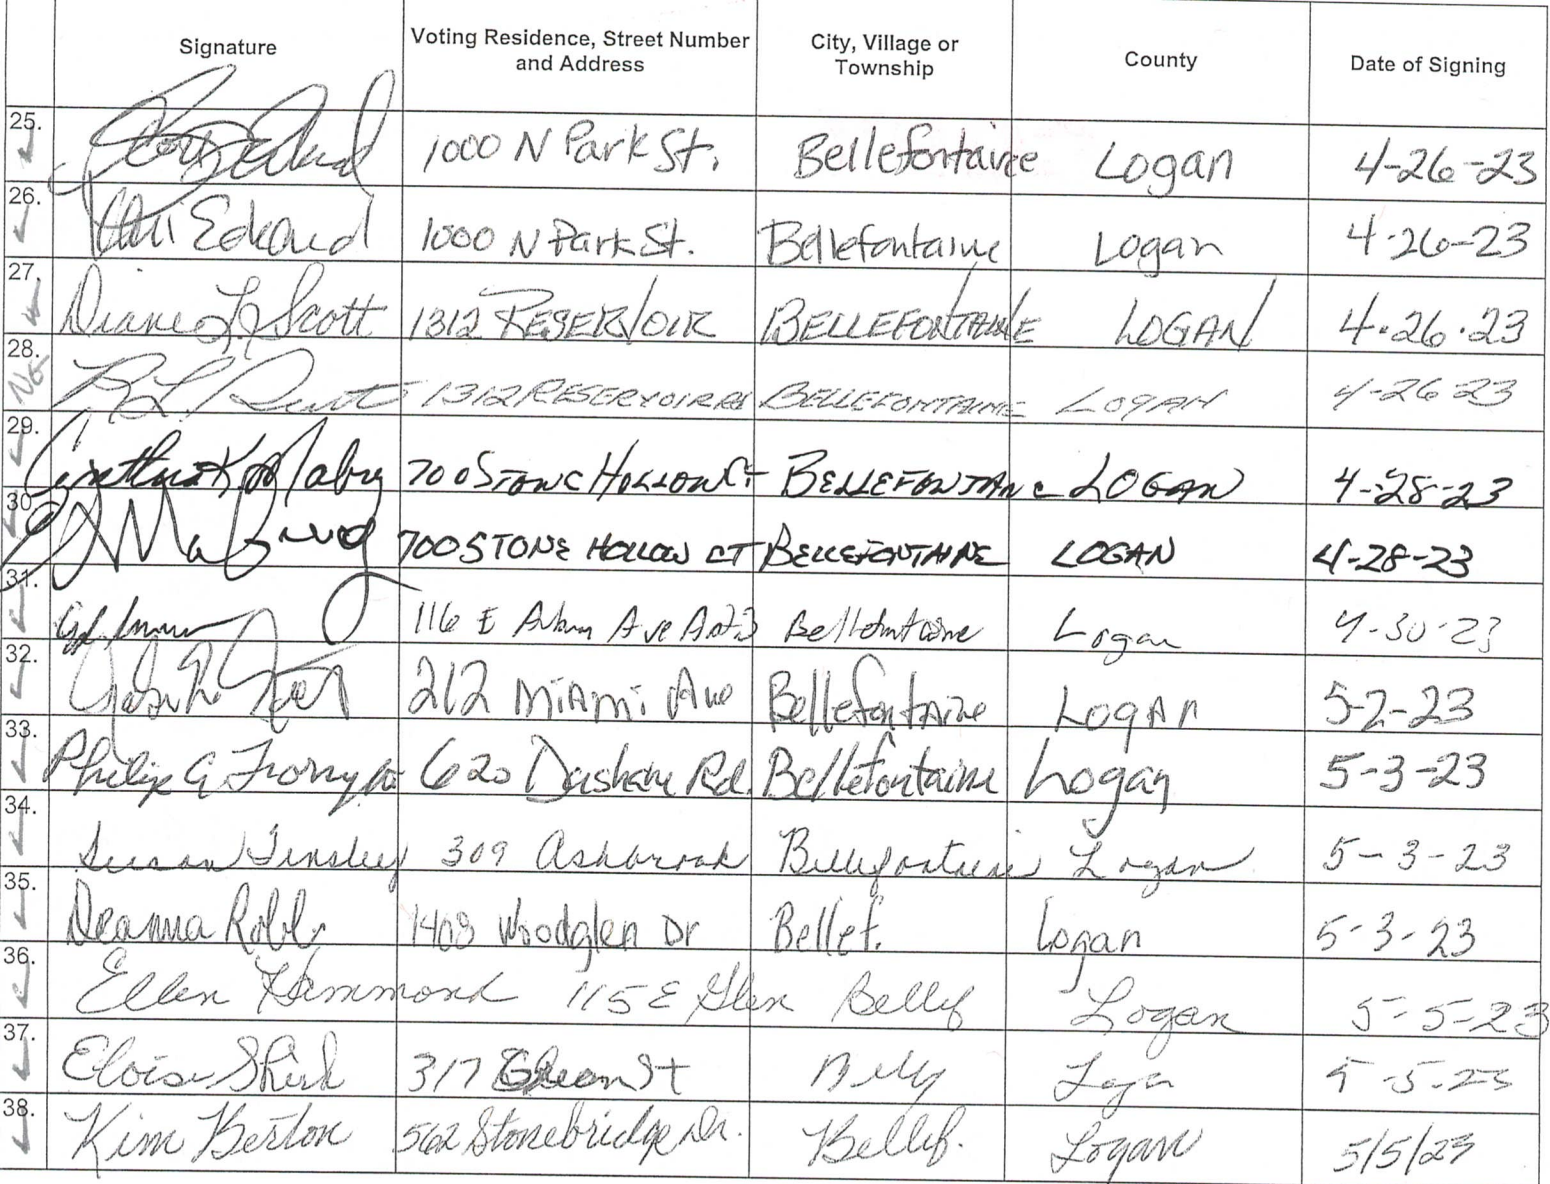 Signature Voting Residence, Street Number and Address City, Village or Township County Date of Signing
25. 1000 N Park St. Bellefontaine Logan 4-26-23
26. 1000 N Park St. Bellefontaine Logan 4-26-23
27. Diane L. Scott 1312 RESERVOIR BELLEFONTAINE LOGAN 4.26.23
28. NG R L 1312 RESERVOIR RD BELLEFONTAINE LOGAN 4-26-23
29. Cynthia K. Mabry 700 STONE HOLLOW CT BELLEFONTAINE LOGAN 4-28-23
30. 700 STONE HOLLOW CT BELLEFONTAINE LOGAN 4-28-23
31. 116 E Ave Apt 3 Bellefontaine Logan 4-30-23
32. 212 Miami Ave Bellefontaine Logan 5-2-23
33. Philip G 620 Rd. Bellefontaine Logan 5-3-23
34. Susan Tinsley 309 Bellefontaine Logan 5-3-23
35. Deanna Robb 1408 Woodglen Dr Bellef. Logan 5-3-23
36. Ellen Hammond 115 E Glen Bellef Logan 5-5-23
37. Eloise 317 St Logan 5-5-23
38. Kim Berton 562 Stonebridge Dr. Bellef. Logan 5/5/23